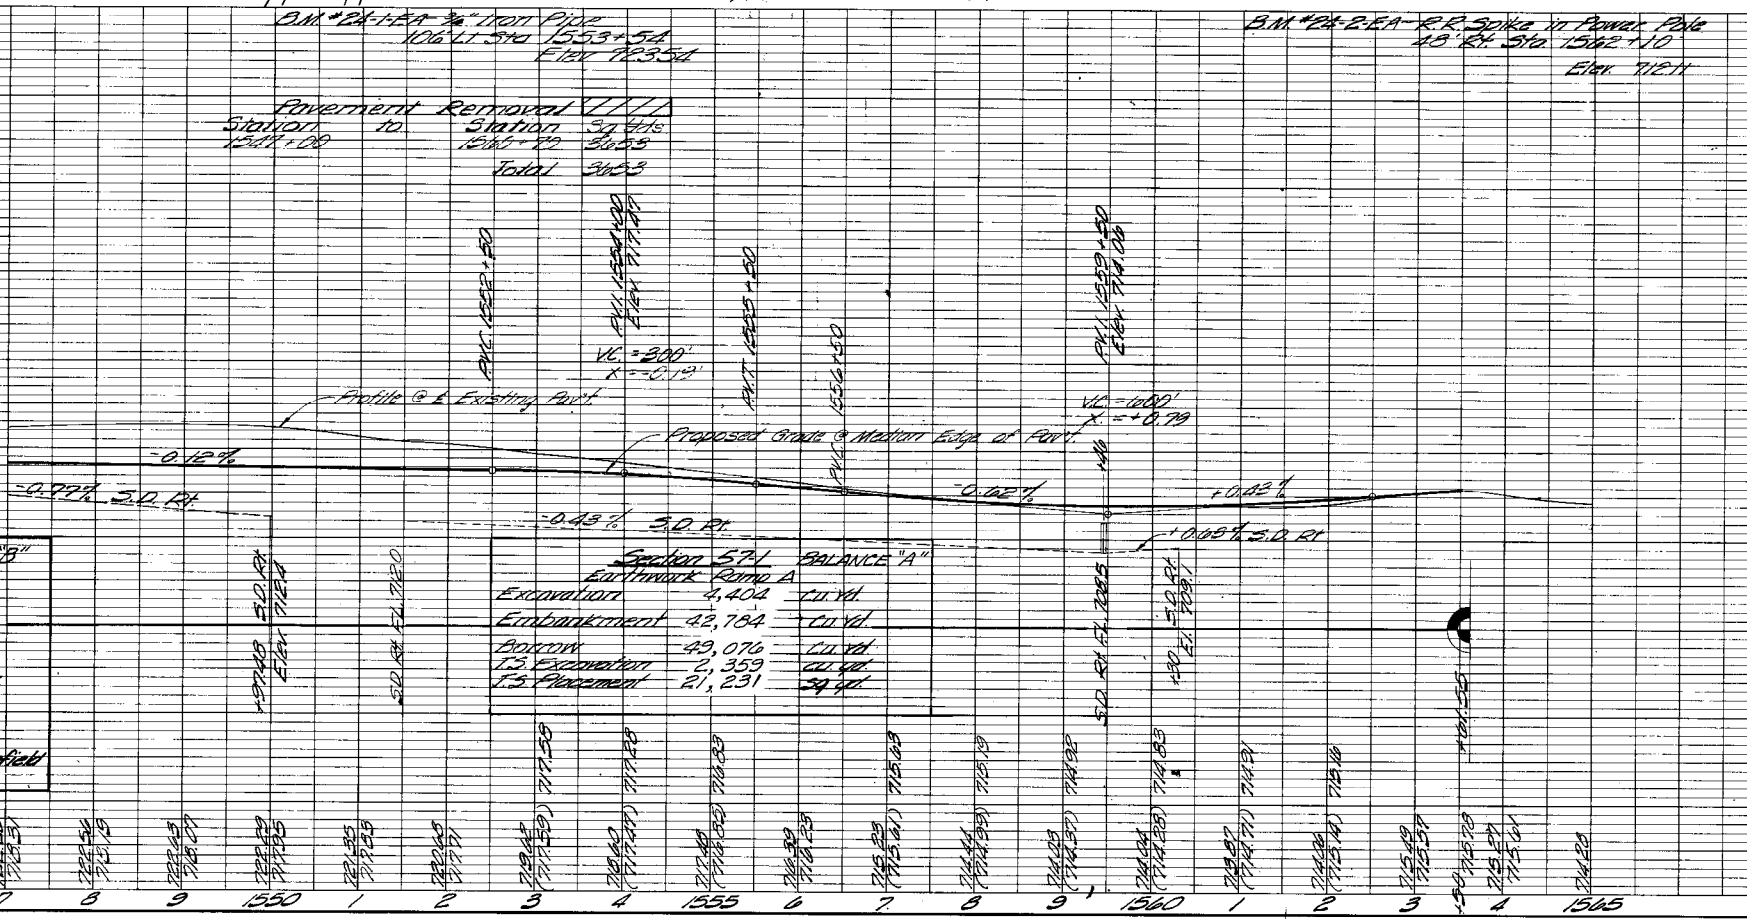 B.M. #24-1-EA ¾" Iron Pipe
106' Lt Sta 1553+54
Elev 723.54
B.M. #24-2-EA R.R. Spike in Power Pole
48' Rt. Sta 1562+10
Elev. 712.11
Pavement Removal
Station to Station Sq Yds
1547+00 3653
Total 3653
P.V.C. 1552+50
P.V.I. 1554+00
Elev 717.47
V.C. = 300'
X = -0.19'
P.V.T. 1555+50
P.V.C. 1556+50
P.V.I. 1559+50
Elev. 714.06
V.C. = 600'
X = +0.79
Profile @ ℄ Existing Pav't.
Proposed Grade @ Median Edge of Pav't.
-0.12%
-0.77% S.D. Rt.
-0.43% S.D. Rt.
-0.62%
+46
+0.43%
+0.65% S.D. Rt
"B"
field
+97.48 S.D. Rt
Elev 712.4
S.D. Rt FL. 712.0
Section 57-1 BALANCE "A"
Earthwork Ramp A
Excavation 4,404 cu yd.
Embankment 42,784 cu yd.
Borrow 49,076 cu. yd.
T.S. Excavation 2,359 cu. yd.
T.S. Placement 21,231 sq. yd.
S.D. Rt FL. 708.5
+30 S.D. Rt.
EL. 709.1
+61.55
717.58
717.28
716.83
715.63
715.19
714.92
714.83
714.91
715.16
722.56
722.63
718.07
722.29
717.95
721.35
717.83
720.68
717.71
719.62
(717.59)
718.60
(717.47)
717.48
(716.85)
716.39
716.23
715.23
(715.61)
714.44
(714.99)
714.03
(714.37)
714.04
(714.28)
713.87
(714.71)
714.06
(715.14)
715.49
715.57
+50 715.78
715.27
715.61
714.28
8 9 1550 1 2 3 4 1555 6 7 8 9 1560 1 2 3 4 1565